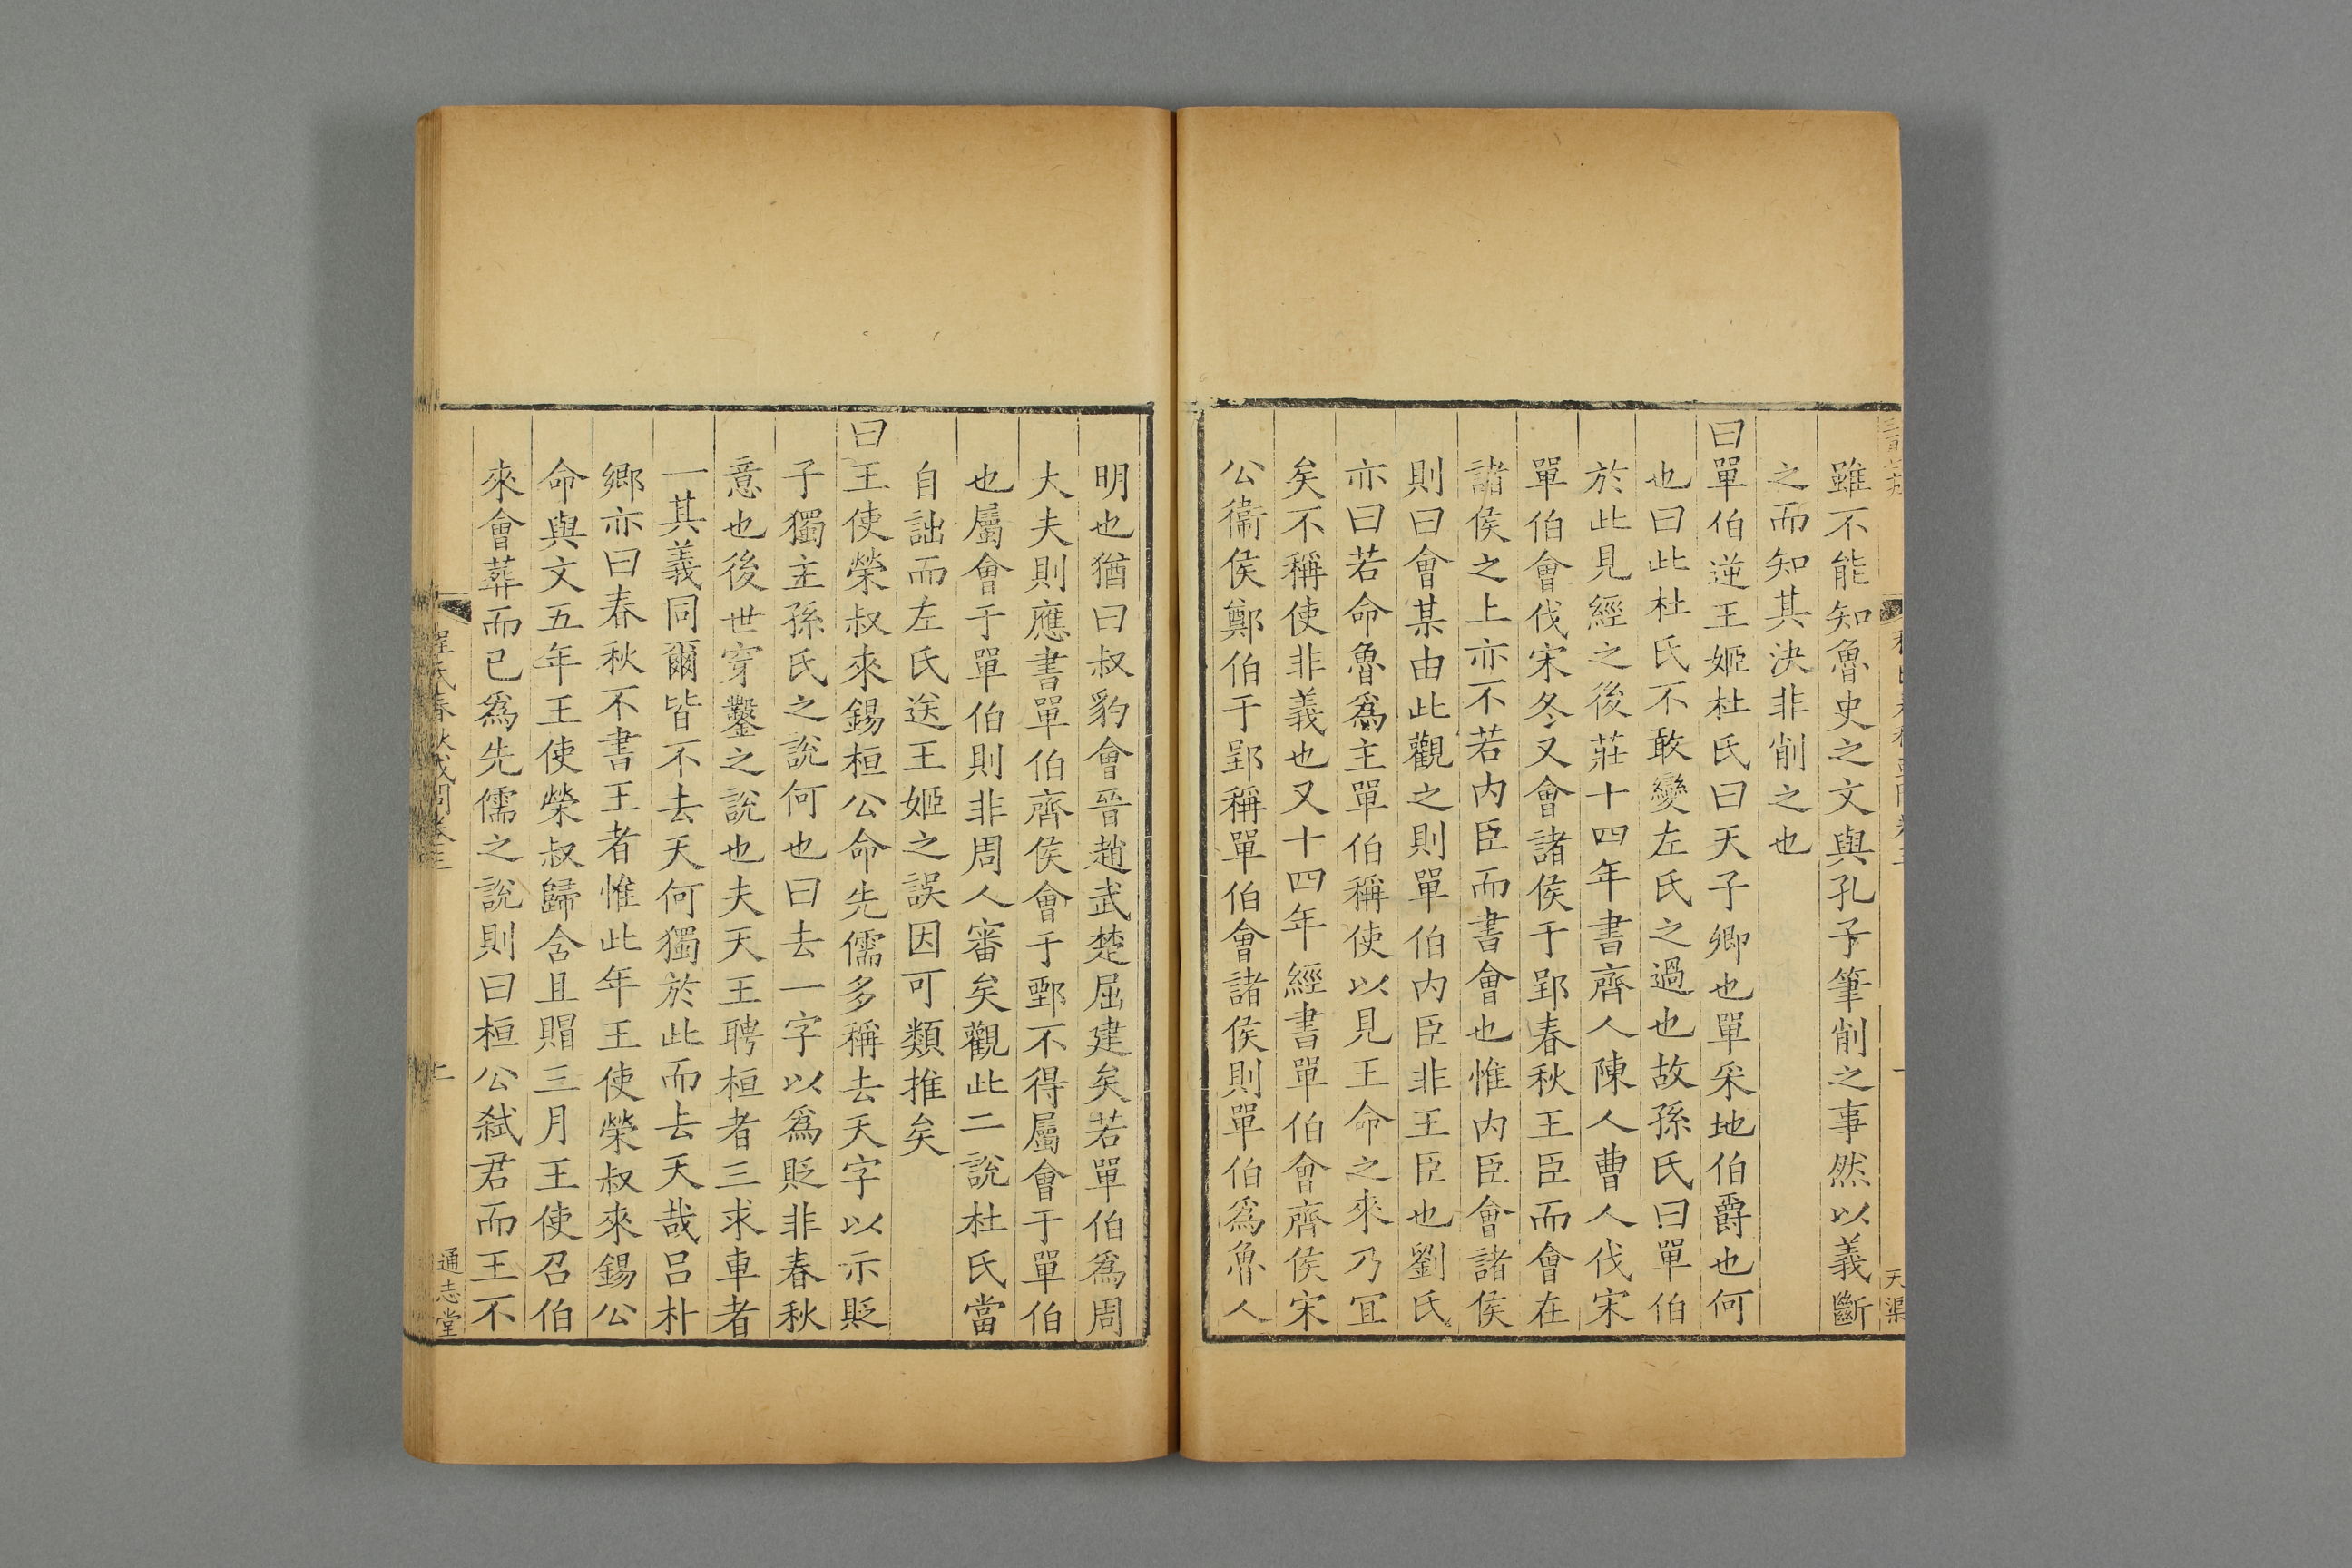 雖不能知魯史之文與孔子筆削之事然以義斷
之而知其決非削之也
曰單伯逆王姬杜氏曰天子卿也單采地伯爵也何
也曰此杜氏不敢變左氏之過也故孫氏曰單伯
於此見經之後莊十四年書齊人陳人曹人伐宋
單伯會伐宋冬又會諸侯于郢春秋王臣而會在
諸侯之上亦不若内臣而書會也惟内臣會諸侯
則曰會某由此觀之則單伯内臣非王臣也劉氏
亦曰若命魯爲主單伯稱使以見王命之來乃冝
矣不稱使非義也又十四年經書單伯會齊侯宋
公衞侯鄭伯于郢稱單伯會諸侯則單伯爲魯人
天渠
明也猶曰叔豹會晉趙武楚屈建矣若單伯爲周
大夫則應書單伯齊侯會于鄄不得屬會于單伯
也屬會于單伯則非周人審矣觀此二說杜氏當
自詘而左氏送王姬之誤因可類推矣
曰王使榮叔來錫桓公命先儒多稱去天字以示貶
子獨主孫氏之說何也曰去一字以爲貶非春秋
意也後世穿鑿之說也夫天王聘桓者三求車者
一其義同爾皆不去天何獨於此而去天哉吕朴
鄉亦曰春秋不書王者惟此年王使榮叔來錫公
命與文五年王使榮叔歸含且賵三月王使召伯
來會葬而已爲先儒之說則曰桓公弑君而王不
程氏春秋或問卷三
二
通志堂